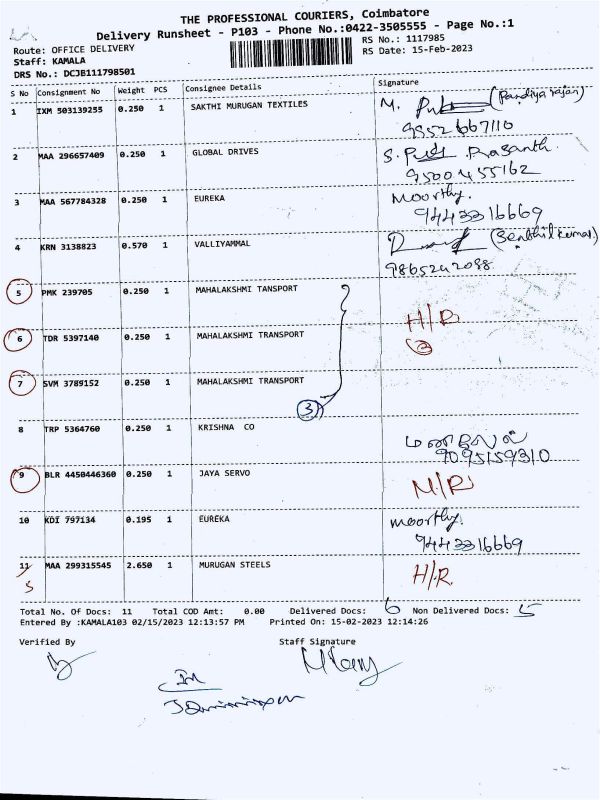 THE PROFESSIONAL COURIERS, Coimbatore
Delivery Runsheet - P103 - Phone No.:0422-3505555 - Page No.:1
Route: OFFICE DELIVERY RS No.: 1117985
Staff: KAMALA RS Date: 15-Feb-2023
DRS No.: DCJB111798501
S No Consignment No Weight PCS Consignee Details Signature
1 IXM 503139255 0.250 1 SAKTHI MURUGAN TEXTILES M. (Pandiya rajan)
9952667110
2 MAA 296657409 0.250 1 GLOBAL DRIVES S. Prasanth
9500455162
3 MAA 567784328 0.250 1 EUREKA Moorthy.
9443316669
4 KRN 3138823 0.570 1 VALLIYAMMAL (Senthil kumar)
9865242088
5 PMK 239705 0.250 1 MAHALAKSHMI TANSPORT
H/R
6 TDR 5397140 0.250 1 MAHALAKSHMI TRANSPORT
7 SVM 3789152 0.250 1 MAHALAKSHMI TRANSPORT
3
8 TRP 5364760 0.250 1 KRISHNA CO
9095159310
9 BLR 4450446360 0.250 1 JAYA SERVO N/R
10 KDI 797134 0.195 1 EUREKA moorthy.
9443316669
11 MAA 299315545 2.650 1 MURUGAN STEELS H/R
5
Total No. Of Docs: 11 Total COD Amt: 0.00 Delivered Docs: 6 Non Delivered Docs: 5
Entered By :KAMALA103 02/15/2023 12:13:57 PM Printed On: 15-02-2023 12:14:26
Verified By Staff Signature